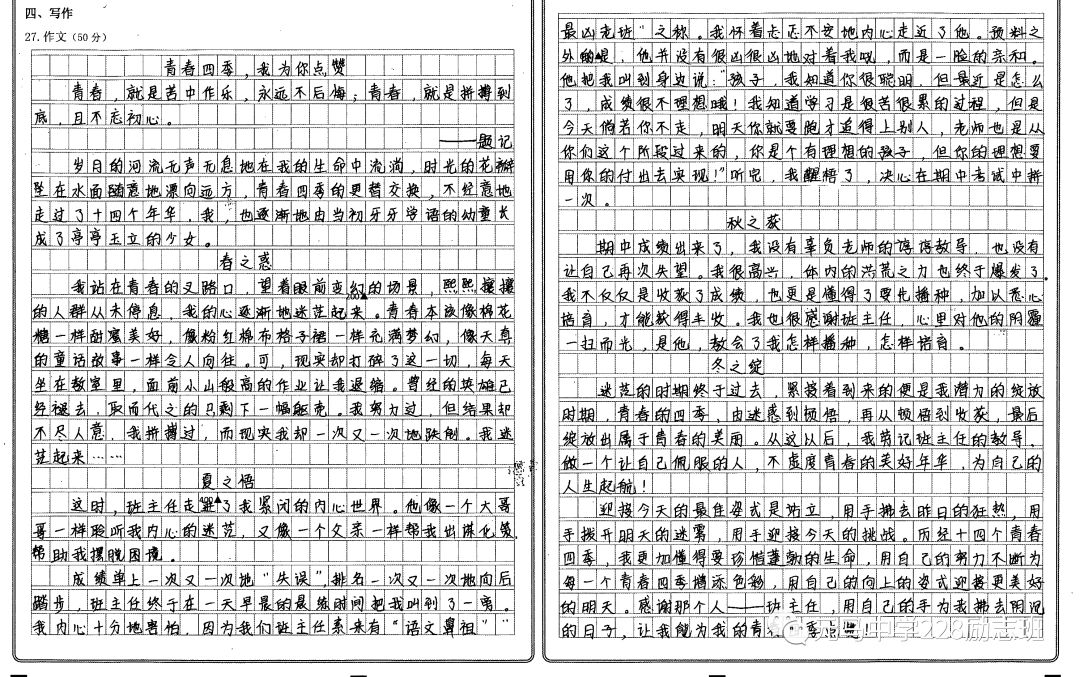 四、写作
27.作文（50分）
青春四季，我为你点赞
青春，就是苦中作乐，永远不后悔；青春，就是拼搏到
底，且不忘初心。
——题记
岁月的河流无声无息地在我的生命中流淌，时光的花瓣
坠在水面随意地漂向远方，青春四季的更替交换，不经意地
走过了十四个年华，我，也逐渐地由当初牙牙学语的幼童长
成了亭亭玉立的少女。
春之惑
我站在青春的叉路口，望着眼前变幻的场景，熙熙攘攘
的人群从未停息，我的心逐渐地迷茫起来。青春本该像棉花
糖一样甜蜜美好，像粉红棉布格子裙一样充满梦幻，像天真
的童话故事一样令人向往。可，现实却打碎了这一切，每天
坐在教室里，面前小山般高的作业让我退缩。曾经的英雄已
经褪去，取而代之的只剩下一幅躯壳。我努力过，但结果却
不尽人意，我拼搏过，而现实我却一次又一次地跌倒。我迷
茫起来……
夏之悟
这时，班主任走进了我紧闭的内心世界。他像一个大哥
哥一样聆听我内心的迷茫，又像一个父亲一样帮我出谋化策
帮助我摆脱困境。
成绩单上一次又一次地“失误”，排名一次又一次地向后
踏步，班主任终于在一天早晨的晨练时间把我叫到了一旁。
我内心十分地害怕，因为我们班主任素来有“语文鼻祖”“
最凶老班”之称。我怀着忐忑不安地内心走近了他。预料之
外的是，他并没有很凶很凶地对着我吼，而是一脸的亲和。
他把我叫到身边说：“孩子，我知道你很聪明，但最近是怎么
了，成绩很不理想哦！我知道学习是很苦很累的过程，但是
今天倘若你不走，明天你就要跑才追得上别人，老师也是从
你们这个阶段过来的，你是个有理想的孩子，但你的理想要
用你的付出去实现！”听完，我醒悟了，决心在期中考试中拼
一次。
秋之获
期中成绩出来了，我没有辜负老师的谆谆教导，也没有
让自己再次失望。我很高兴，体内的洪荒之力也终于爆发了。
我不仅仅是收获了成绩，也更是懂得了要先播种，加以悉心
培育，才能获得丰收。我也很感谢班主任，心里对他的阴霾
一扫而光，是他，教会了我怎样播种，怎样培育。
冬之绽
迷茫的时期终于过去，紧接着到来的便是我潜力的绽放
时期，青春的四季，由迷惑到顿悟，再从顿悟到收获，最后
绽放出属于青春的美丽。从这以后，我劳记班主任的教导，
做一个让自己佩服的人，不虚度青春的美好年华，为自己的
人生起航！
迎接今天的最佳姿式是站立，用手拂去昨日的狂热，用
手拨开明天的迷雾，用手迎接今天的挑战。历经十四个青春
四季，我更加懂得要珍惜蓬勃的生命，用自己的努力不断为
每一个青春四季增添色彩，用自己的向上的姿式迎接更美好
的明天。感谢那个人——班主任，用自己的手为我拂去阴沉
的日子，让我能为我的青春四季点赞！